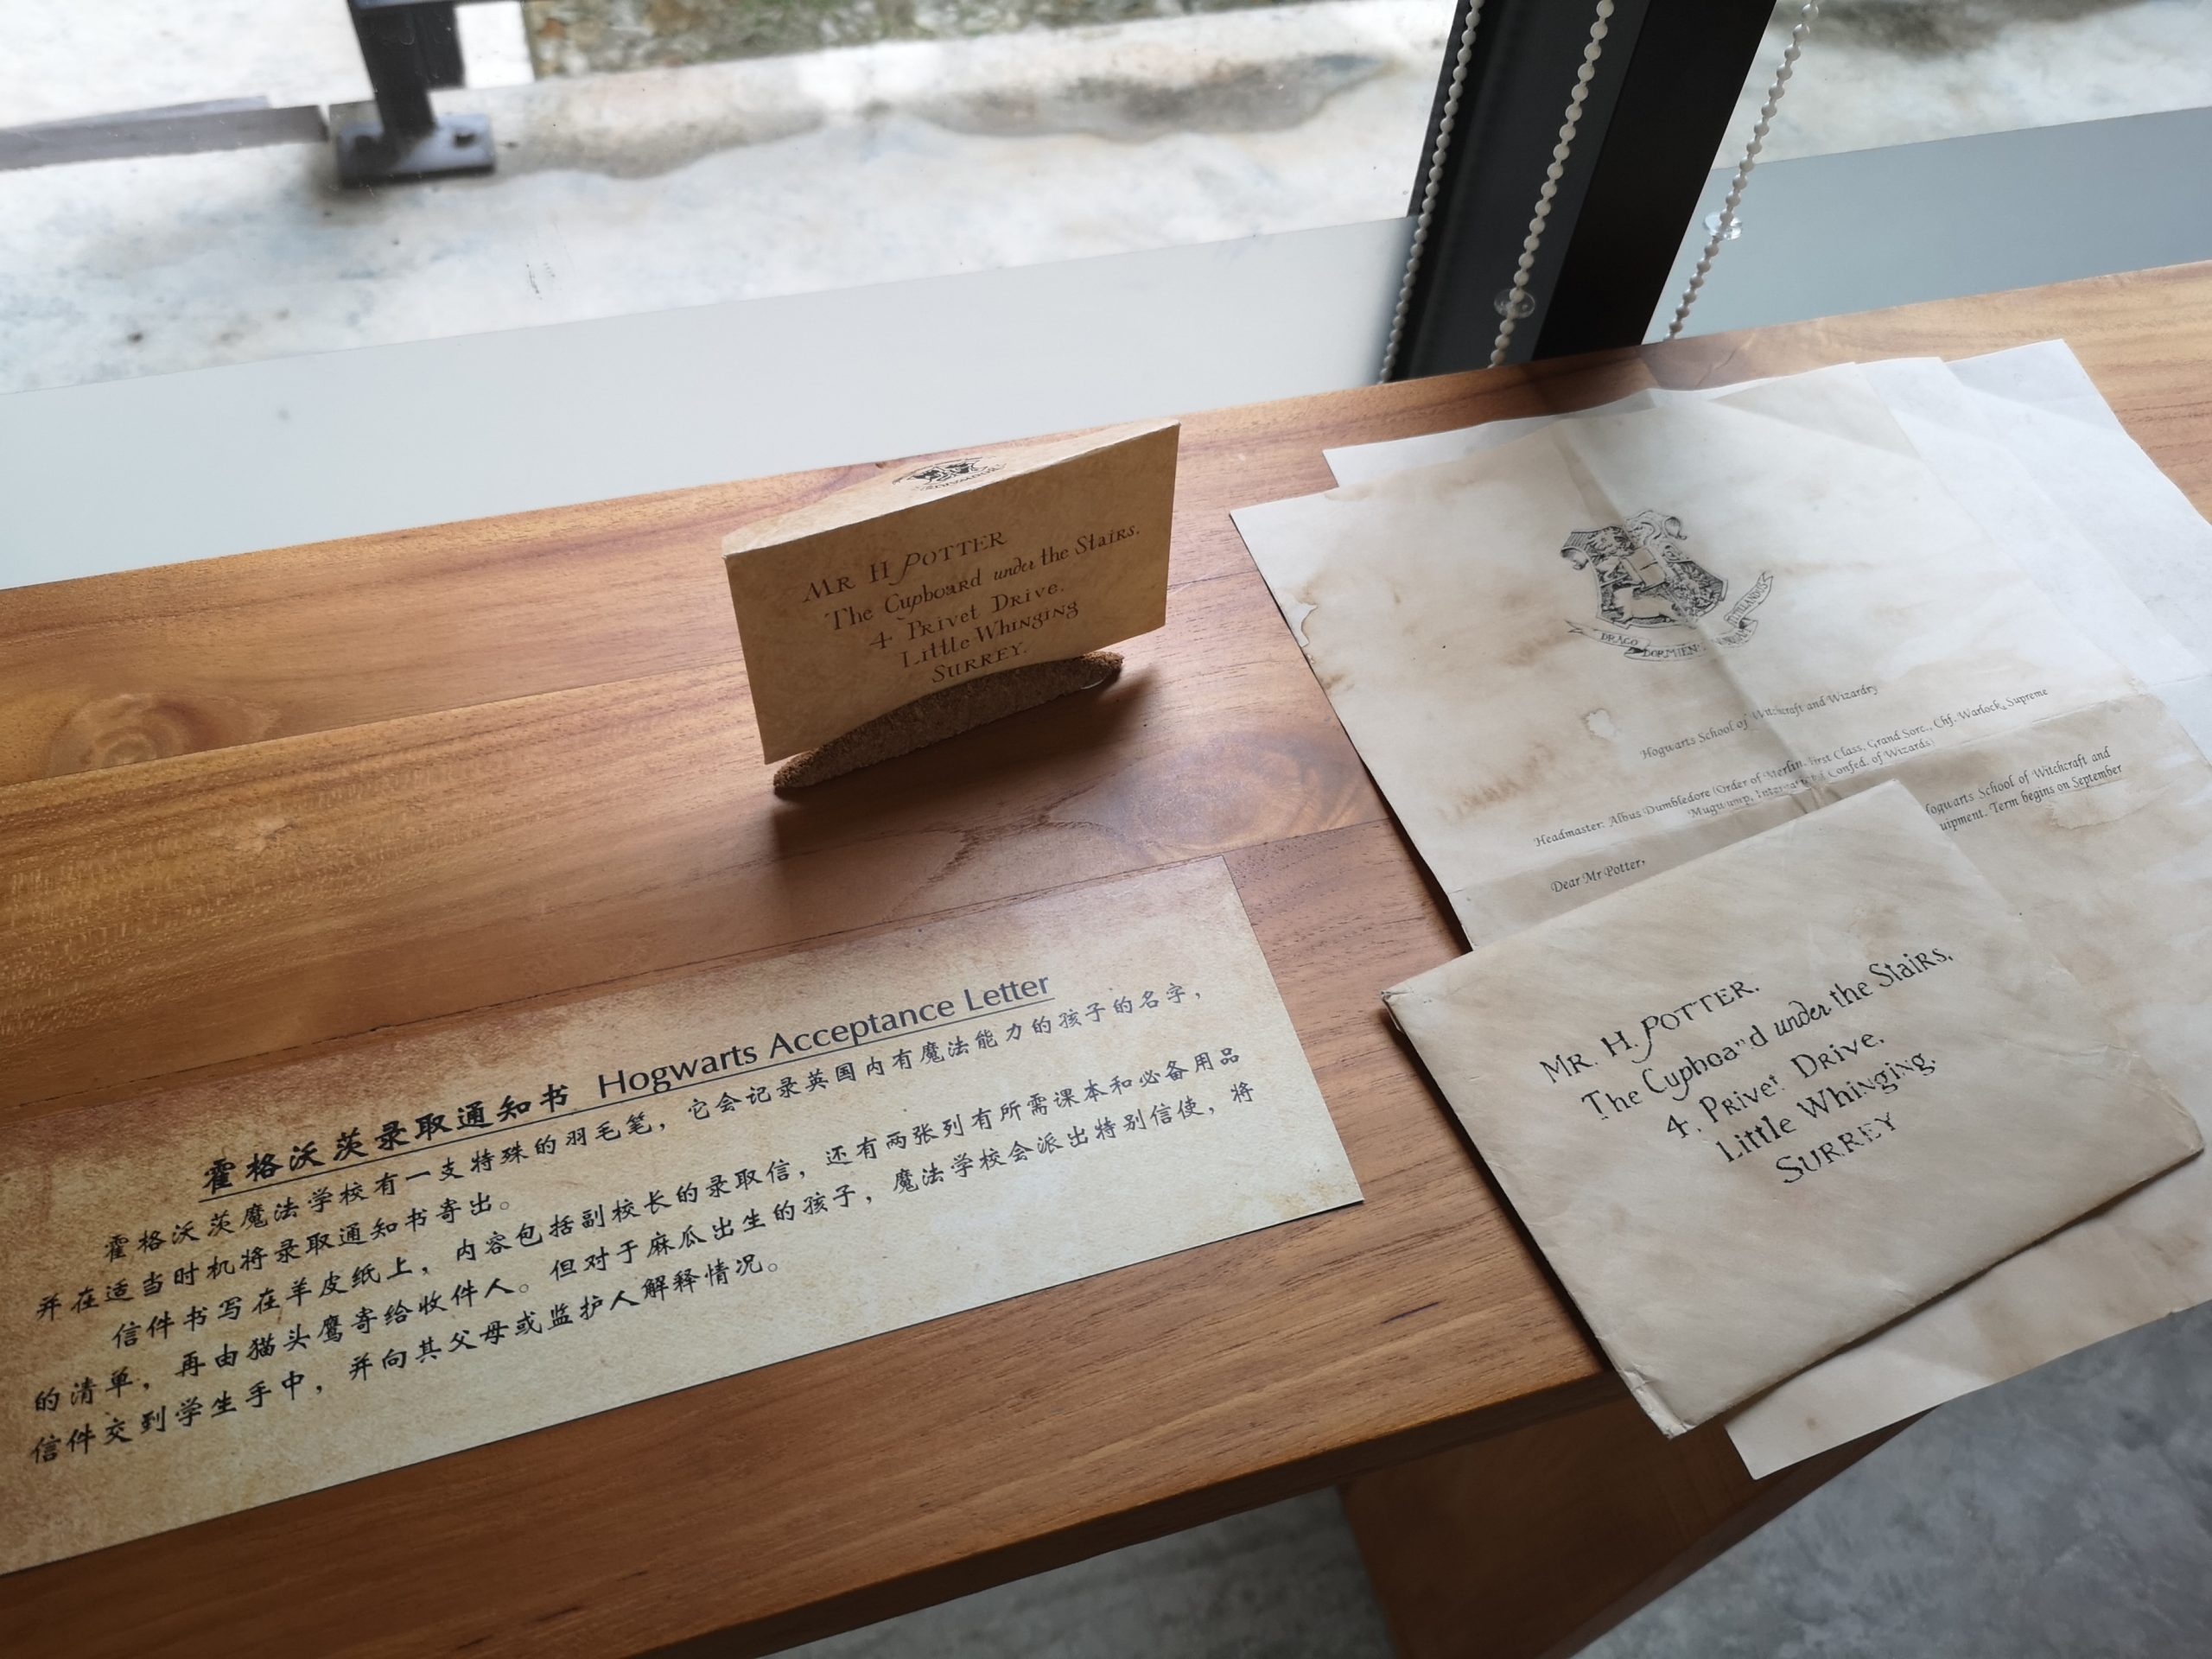 MR H POTTER
The Cupboard under the Stairs.
4 Privet Drive.
Little Whinging
SURREY.
霍格沃茨录取通知书 Hogwarts Acceptance Letter
霍格沃茨魔法学校有一支特殊的羽毛笔，它会记录英国内有魔法能力的孩子的名字，
并在适当时机将录取通知书寄出。
信件书写在羊皮纸上，内容包括副校长的录取信，还有两张列有所需课本和必备用品
的清单，再由猫头鹰寄给收件人。但对于麻瓜出生的孩子，魔法学校会派出特别信使，将
信件交到学生手中，并向其父母或监护人解释情况。
DRACO DORMIENS
Hogwarts School of Witchcraft and Wizardry
Headmaster: Albus Dumbledore (Order of Merlin, First Class, Grand Sorc., Chf. Warlock, Supreme
Mugwump, International Confed. of Wizards)
Dear Mr Potter,
Hogwarts School of Witchcraft and
equipment. Term begins on September
MR. H. POTTER.
The Cupboard under the Stairs,
4. Privet Drive.
Little Whinging.
SURREY